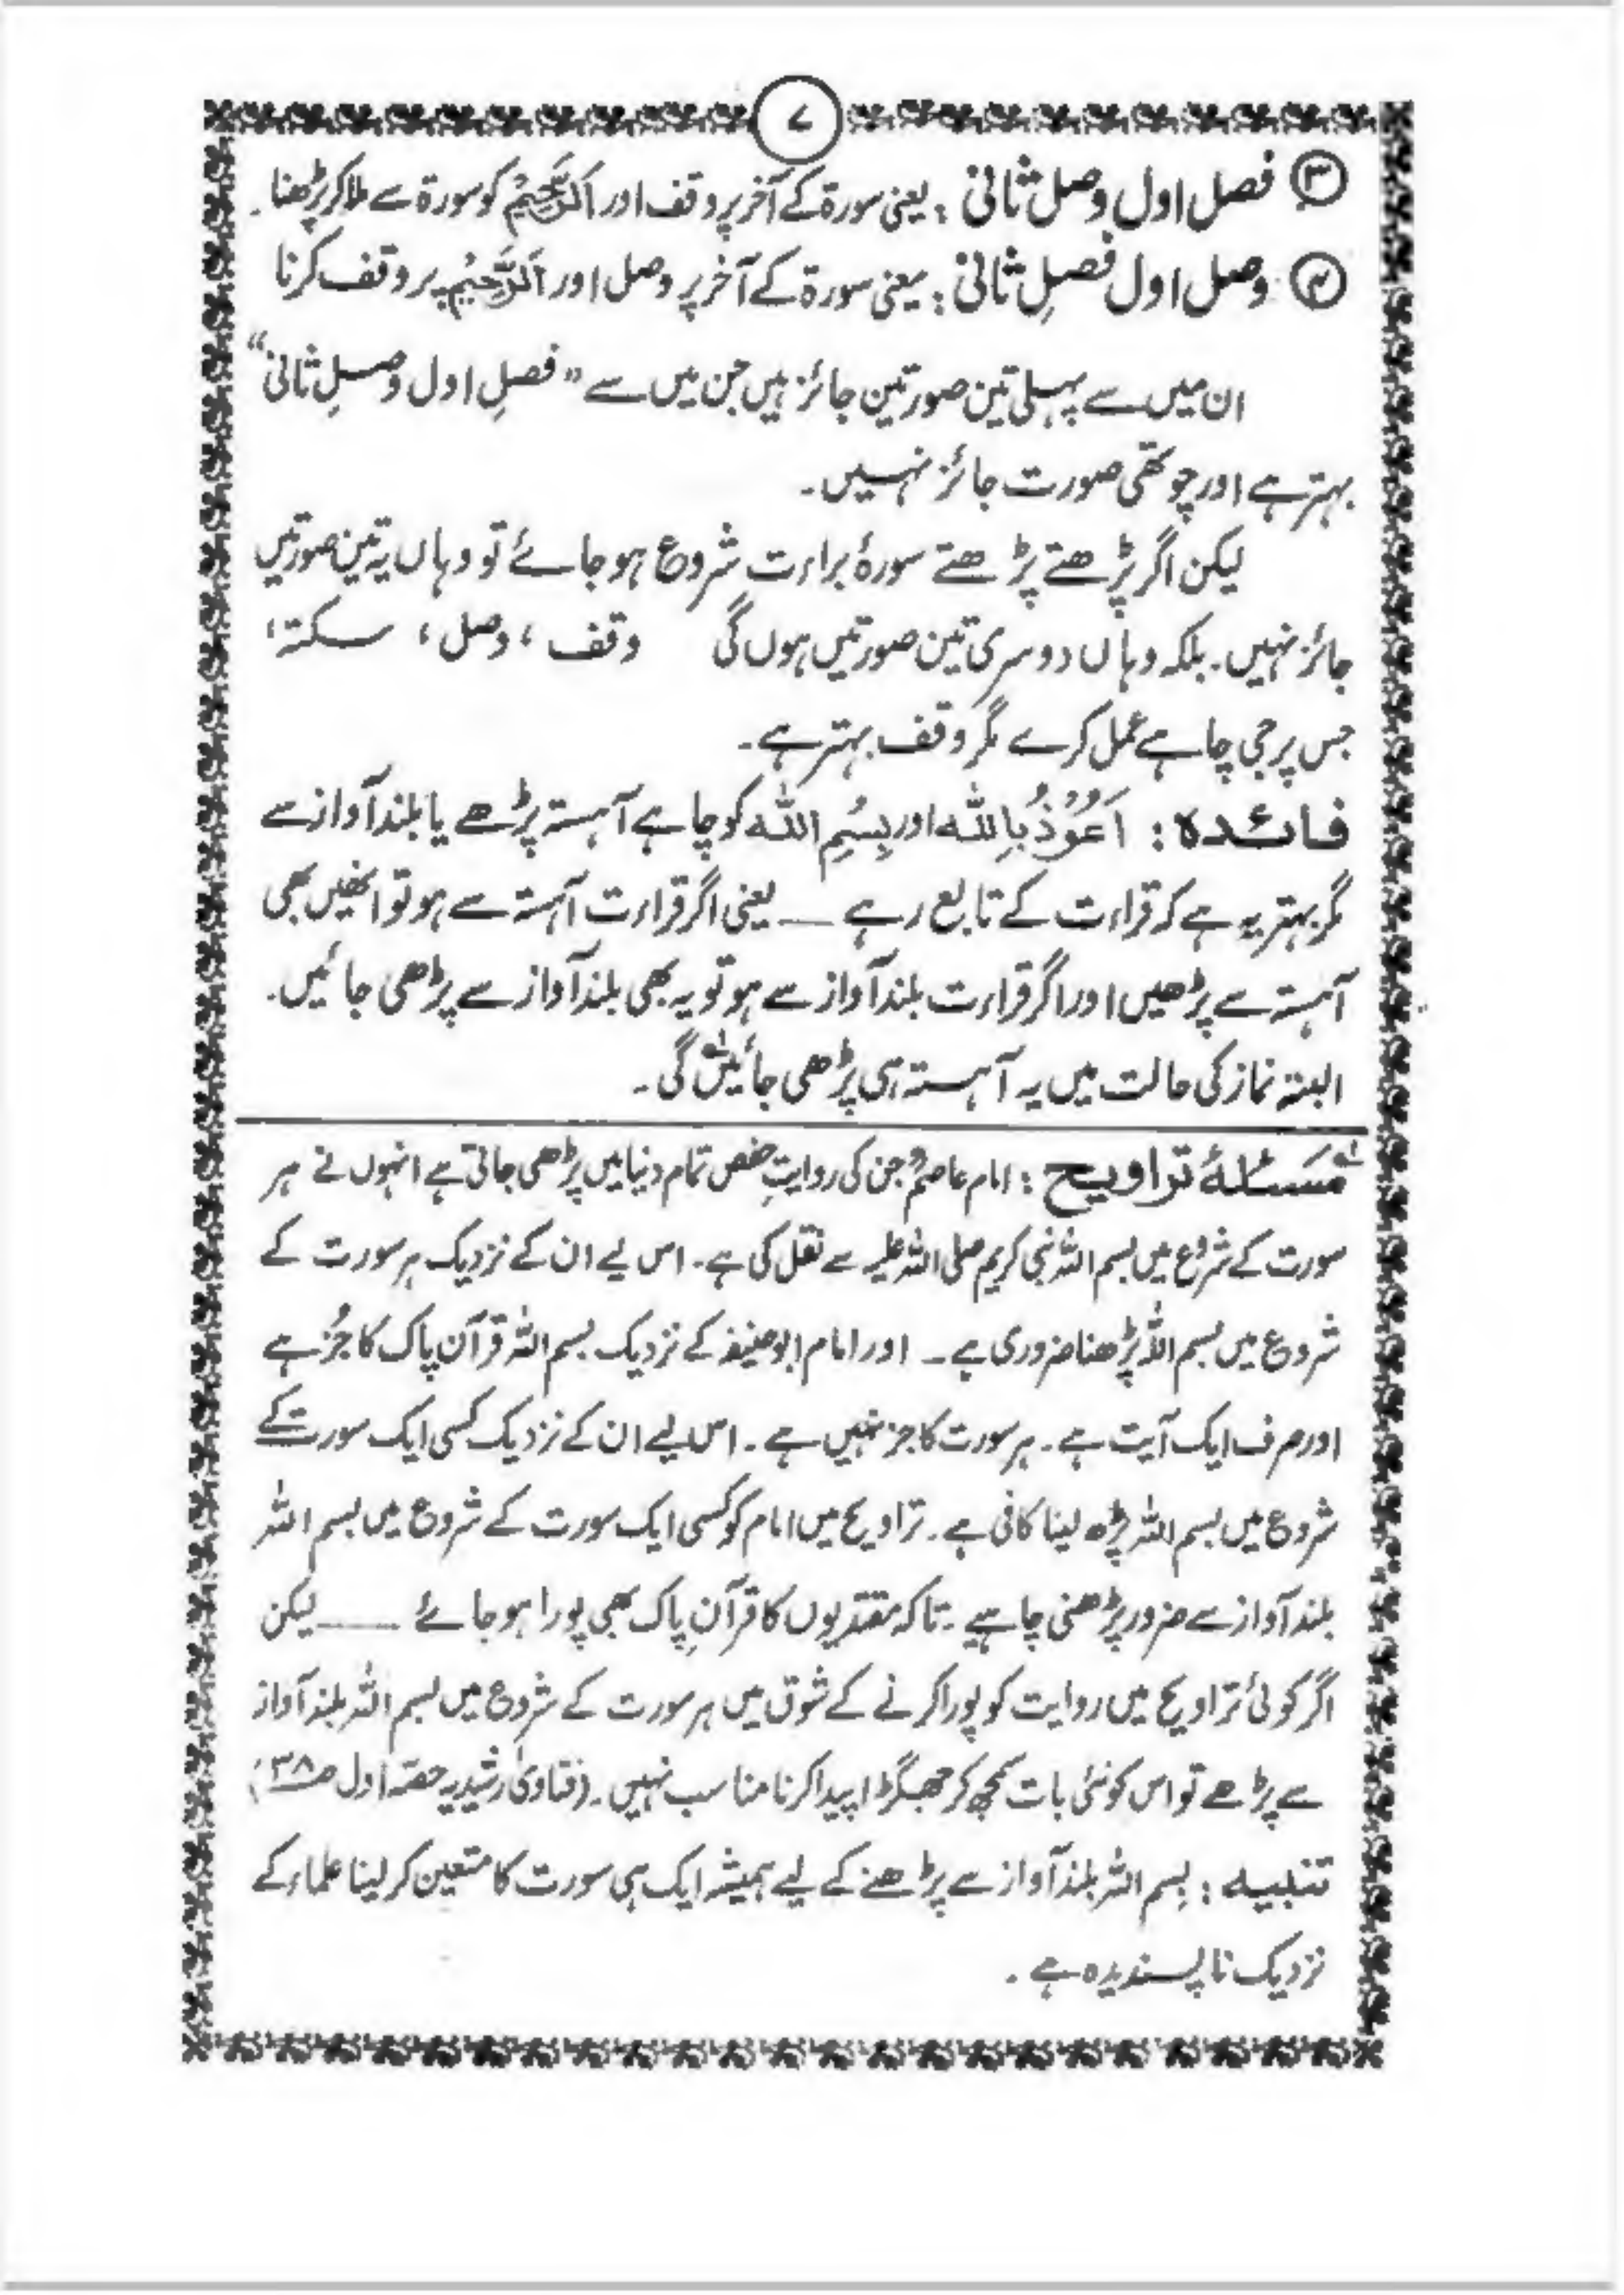 ۷
③ فصل اول وصل ثانی : یعنی سورۃ کے آخر پر وقف اور اَلرَّحِیْمُ کو سورۃ سے ملا کر پڑھنا۔
④ وصل اول فصلِ ثانی : یعنی سورۃ کے آخر پر وصل اور اَلرَّحِیْمُ پر وقف کرنا
ان میں سے پہلی تین صورتیں جائز ہیں جن میں سے ” فصلِ اول وصلِ ثانی “
بہتر ہے اور چوتھی صورت جائز نہیں۔
لیکن اگر پڑھتے پڑھتے سورۂ براءت شروع ہوجائے تو وہاں یہ تین صورتیں
جائز نہیں۔ بلکہ وہاں دوسری تین صورتیں ہوں گی وقف ، وصل ، سکتہ ،
جس پر جی چاہے عمل کرے مگر وقف بہتر ہے۔
فائدہ : اَعُوْذُ بِاللہ اور بِسْمِ اللہ کو چاہے آہستہ پڑھے یا بلند آواز سے
مگر بہتر یہ ہے کہ قراءت کے تابع رہے ــــ یعنی اگر قراءت آہستہ سے ہو تو انھیں بھی
آہستہ سے پڑھیں اور اگر قراءت بلند آواز سے ہو تو یہ بھی بلند آواز سے پڑھی جائیں۔
البتہ نماز کی حالت میں یہ آہستہ ہی پڑھی جائیں لہ گی۔
لہ مسئلۂ تراویح : امام عاصمؒ جن کی روایتِ حفص تمام دنیا میں پڑھی جاتی ہے انہوں نے ہر
سورت کے شروع میں بسم اللہ نبی کریم صلی اللہ علیہ سے نقل کی ہے۔ اس لیے ان کے نزدیک ہر سورت کے
شروع میں بسم اللہ پڑھنا ضروری ہے۔ اور امام ابو حنیفہ کے نزدیک بسم اللہ قرآن پاک کا جُز ہے
اور صرف ایک آیت ہے۔ ہر سورت کا جز نہیں ہے۔ اس لیے ان کے نزدیک کسی ایک سورت کے
شروع میں بسم اللہ پڑھ لینا کافی ہے۔ تراویح میں امام کو کسی ایک سورت کے شروع میں بسم اللہ
بلند آواز سے ضرور پڑھنی چاہیے۔ تاکہ مقتدیوں کا قرآنِ پاک بھی پورا ہوجائے ــــ لیکن
اگر کوئی تراویح میں روایت کو پورا کرنے کے شوق میں ہر سورت کے شروع میں بسم اللہ بلند آواز
سے پڑھے تو اس کو نئی بات سمجھ کر جھگڑا پیدا کرنا مناسب نہیں۔ (فتاویٰ رشیدیہ حصّہ اول ص۳۸)
تنبیہ : بِسم اللہ بلند آواز سے پڑھنے کے لیے ہمیشہ ایک ہی سورت کا متعین کرلینا علماء کے
نزدیک ناپسندیدہ ہے۔